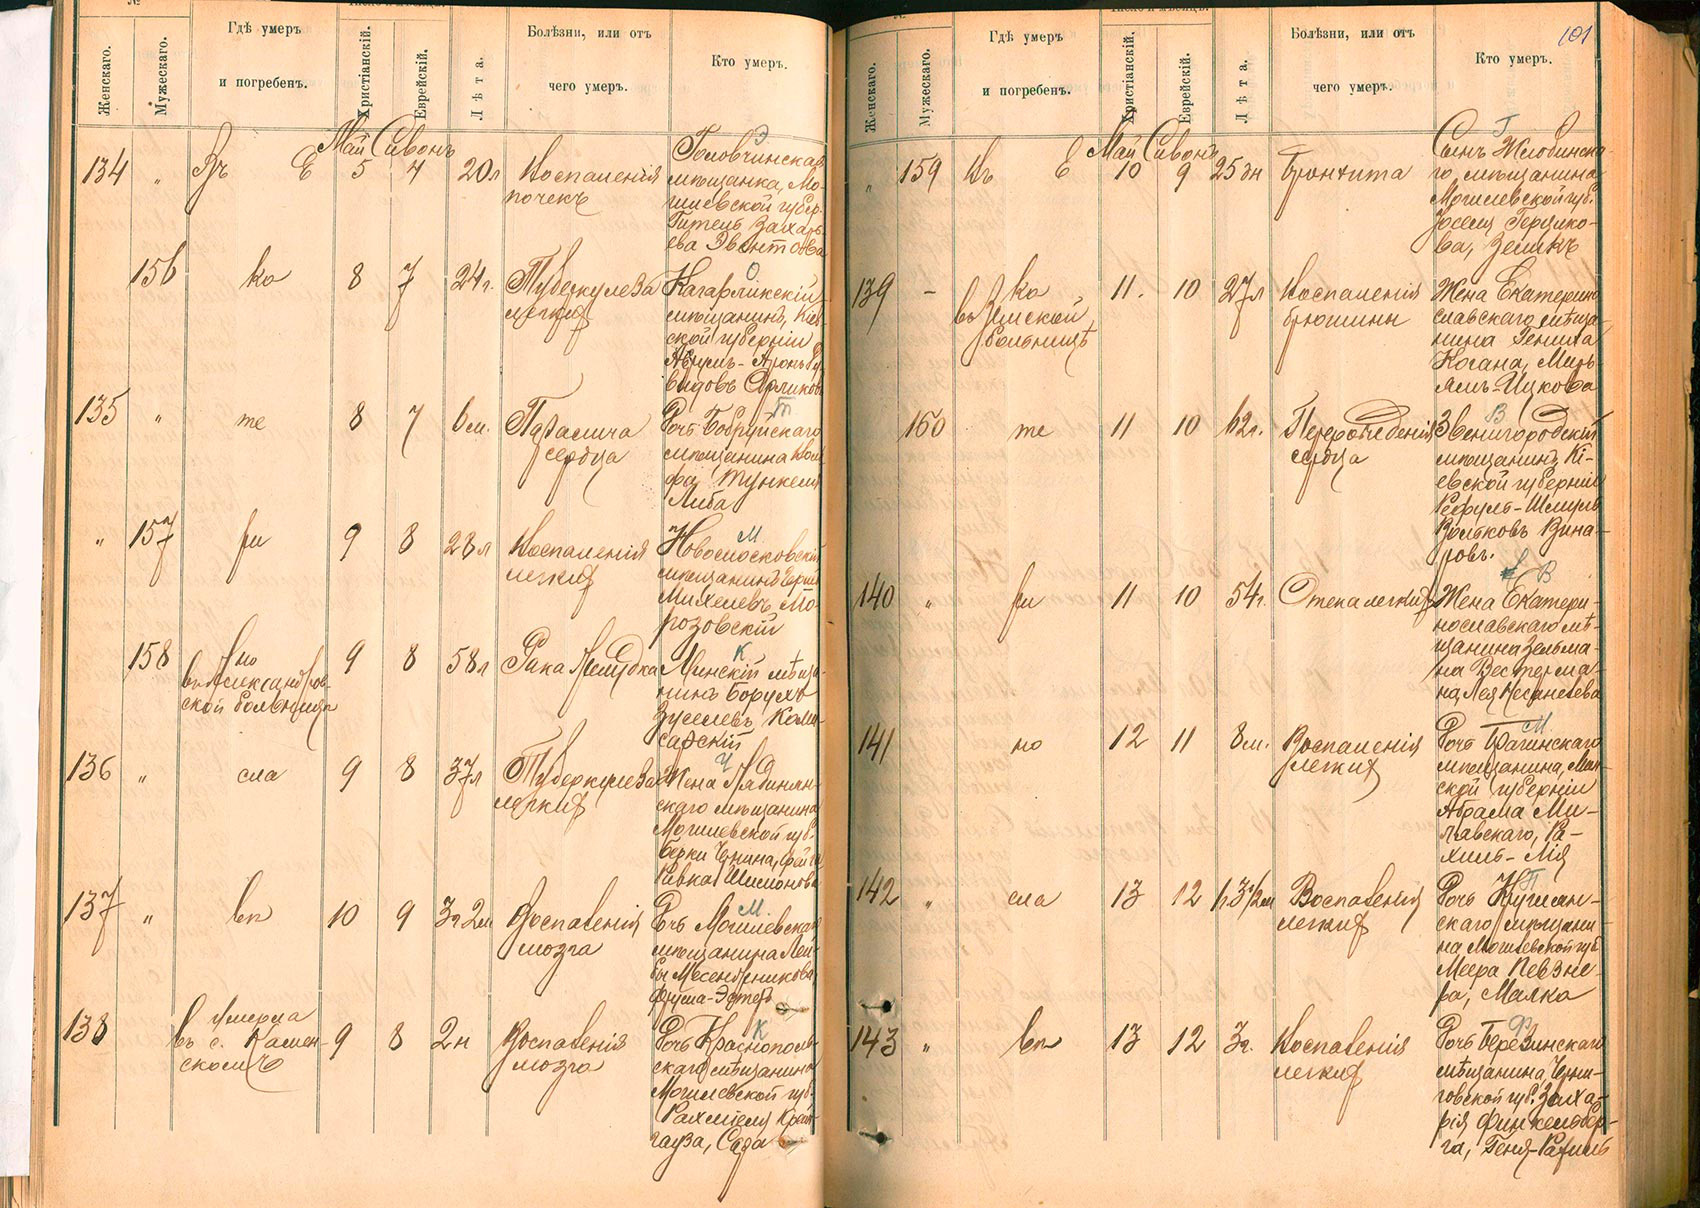 Женскаго.
Мужескаго.
Гдѣ умеръ
и погребенъ.
Христіанскій.
Еврейскій.
Лѣта.
Болѣзни, или отъ
чего умеръ.
Кто умеръ.
Май Сивонъ
134 " Въ Е 5 7 20л Воспаленія
почекъ
Э
Головчинская
мѣщанка, Мо-
гилевской губер.
Гитель Захарь-
ева
156 ка 8 7 24г. Туберкулеза
легких
Кагарликскій
мѣщанинъ, Кіев-
ской губерніи
135 " те 8 7 6м. Паралича
сердца
Т
Дочь Бобруйскаго
мѣщанина
Либа
" 157 ри 9 8 28л Воспаленія
легких
М
Новомосковскій
мѣщанинъ
Михелевъ Мо-
розовскій
158 но
въ Александров-
ской больницѣ
9 8 58л Рака желудка
К
Минскій мѣща-
нинъ Борухъ
Зуселевъ Коми-
сарскій
136 " сла 9 8 37л Туберкулеза
легких
Ч
Жена
скаго мѣщанина
Могилевской губ.
Берки Чернина,
Ривка Шимонова
137 " вп 10 9 3г 2м. Воспаленія
мозга
М
Дочь Могилевскаго
мѣщанина Лей-
бы
Фрума-Эстеръ
138 Умерла
въ с. Камен-
скомъ
9 8 2н Воспаленія
мозга
К
Дочь Краснополь-
скаго мѣщанина
Могилевской губ.
Рахміеля Край-
гауза, Сара
101
Женскаго.
Мужескаго.
Гдѣ умеръ
и погребенъ.
Христіанскій.
Еврейскій.
Лѣта.
Болѣзни, или отъ
чего умеръ.
Кто умеръ.
Май Сивонъ
" 159 Въ Е 10 9 25дн Бронхита
Г
Сынъ Жлобинска-
го мѣщанина
Могилевской губ.
Герцико-
ва, Зеликъ
139 - ка
въ Земской
больницѣ
11. 10 27л Воспаленія
брюшины
Жена Екатерино-
славскаго мѣща-
нина
Когана, Мирь-
ямъ-Ицкова
160 те 11 10 62г. Перерожденія
сердца
В
Звенигородскій
мѣщанинъ, Кі-
евской губерніи
Рефуль-Шмуль
Вольковъ Вина-
ровъ.
140 " ри 11 10 54г. Отека легких
В
Жена Екатери-
нославскаго мѣ-
щанина Зельма-
на Вестерма-
на Лея
141 но 12 11 8м. Воспаленія
легких
М
Дочь Брагинскаго
мѣщанина, Мин-
ской губерніи
Абрама Ми-
лавскаго, Ра-
хиль-Лія
142 " сла 13 12 Воспаленія
легких
П
Дочь
скаго мѣщани-
на Могилевской губ
Меера Певзне-
ра, Малка
143 " вп 13 12 3г. Воспаленія
легких
Ф
Дочь Березинскаго
мѣщанина, Черни-
говской губ. Заха-
рія Финкельбер-
га, Геня-Рахиль